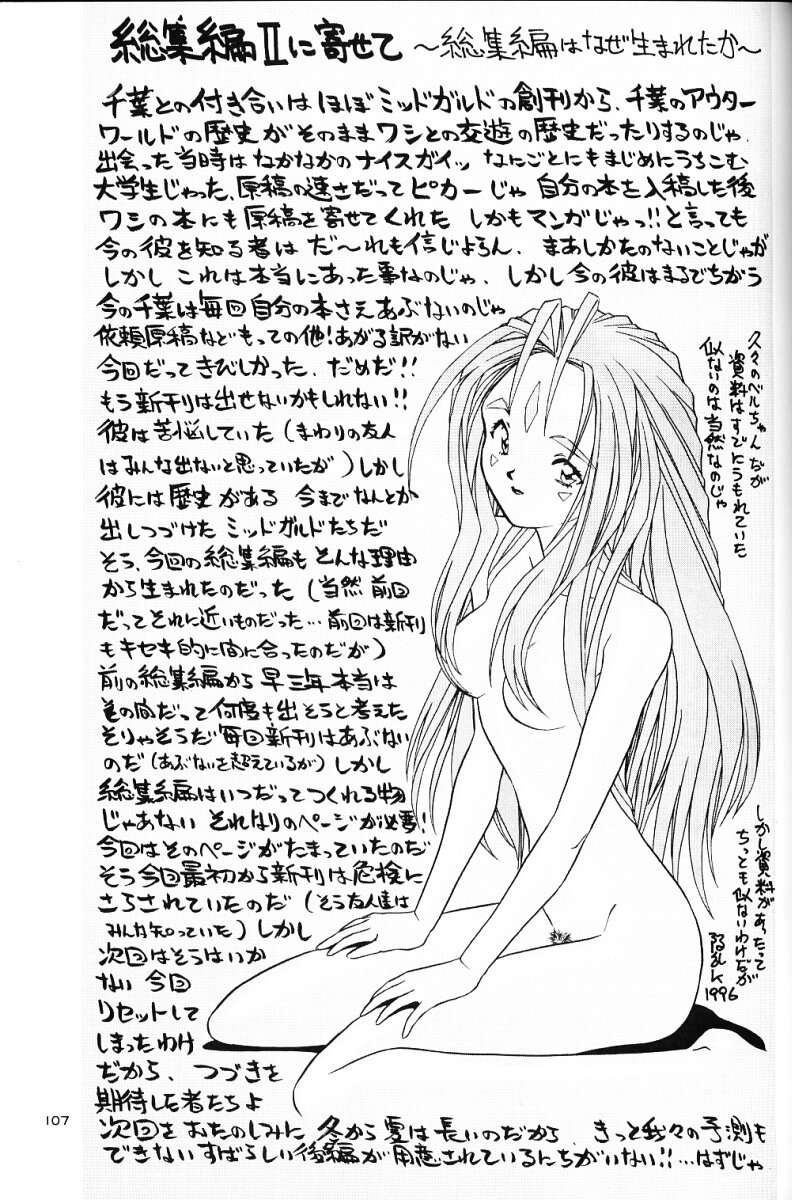 総集編Ⅱに寄せて ～総集編はなぜ生まれたか～
千葉との付き合いはほぼミッドガルドの創刊から、千葉のアウター
ワールドの歴史がそのままワシとの交遊の歴史だったりするのじゃ.
出会った当時はなかなかのナイスガイッ なにごとにもまじめにうちこむ
大学生じゃった、原稿の速さだってピカーじゃ 自分の本を入稿した後
ワシの本にも原稿を寄せてくれた しかもマンガじゃっ!!と言っても
今の彼を知る者は だ～れも信じよらん、まあしかたのないことじゃが
しかし これは本当にあった事なのじゃ、しかし今の彼はまるでちがう
今の千葉は毎回自分の本さえあぶないのじゃ
依頼原稿などもっての他!あがる訳がない
今回だってきびしかった、だめだ!!
もう新刊は出せないかもしれない!!
彼は苦悩していた(まわりの友人
はみんな出ないと思っていたが)しかし
彼には歴史がある 今までなんとか
出しつづけた ミッドガルドたちだ
そう、今回の総集編もそんな理由
から生まれたのだった(当然前回
だってそれに近いものだった…前回は新刊
もキセキ的に間に合ったのだが)
前の総集編から早三年本当は
その間だって何度も出そうと考えた
そりゃそうだ毎回新刊はあぶない
のだ(あぶないを超えているが)しかし
総集編はいつだってつくれる物
じゃあない それなりのページが必要!
今回はそのページがたまっていたのだ
そう今回最初から新刊は危険に
さらされていたのだ(そう友人達は
みんな知っていた)しかし
次回はそうはいか
ない 今回
リセットして
しまったわけ
だから、つづきを
期待した者たちよ
次回をおたのしみに 冬から夏は長いのだから、きっと我々の予測も
できないすばらしい後編が用意されているにちがいない!!…はずじゃ
久々のベルちゃんだが
資料はすでにうもれていた
似ないのは当然なのじゃ
しかし資料があったって
ちっとも似ないわけだが
1996
107